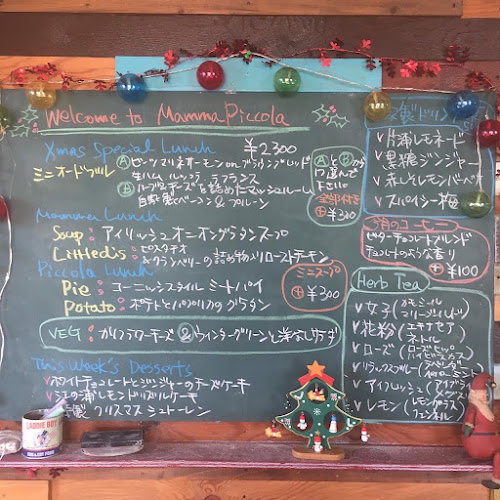 Welcome to Mamma Piccola
Xmas Special Lunch ¥2,300
ミニオードブル
Ⓐ ビーツマリネサーモン on ブラウンブレッド
生ハム ルッコラ ラフランス
Ⓑ ハーブ&チーズを詰めたマッシュルーム
自家製ベーコン&プルーン
ⒶとⒷから
1つ選んで
下さい
全部付き
⊕¥330
Mamma Lunch
Soup: アイリッシュオニオングラタンスープ
Little dis: ピスタチオ
&クランベリーの詰め物入りローストチキン
Piccola Lunch
Pie: コーニッシュスタイル ミートパイ
Potato: ポテトとパプリカのグラタン
ミニスープ
⊕¥300
VEG: カリフラワーチーズ & ウィンターグリーンと洋梨サラダ
This Week's Desserts
ホワイトチョコレートとジンジャーのチーズケーキ
江の浦レモンドリズルケーキ
製 クリスマスシュトーレン
製ドリン
片浦レモネード
黒糖ジンジャー
赤しそレモンバーベナ
スパイシー梅
今月のコーヒー
ビターチョコレートブレンド
チョコレートのような香り
⊕¥100
Herb Tea
女子(カモミール
マリーゴールド)
花粉(エキナセア
ネトル)
ローズ(ローズヒップ
ハイビスカス)
リラックスブルー(ラベンダー
アイリッシュ(
レモン(レモングラス
フェンネル
LADDIE BOY